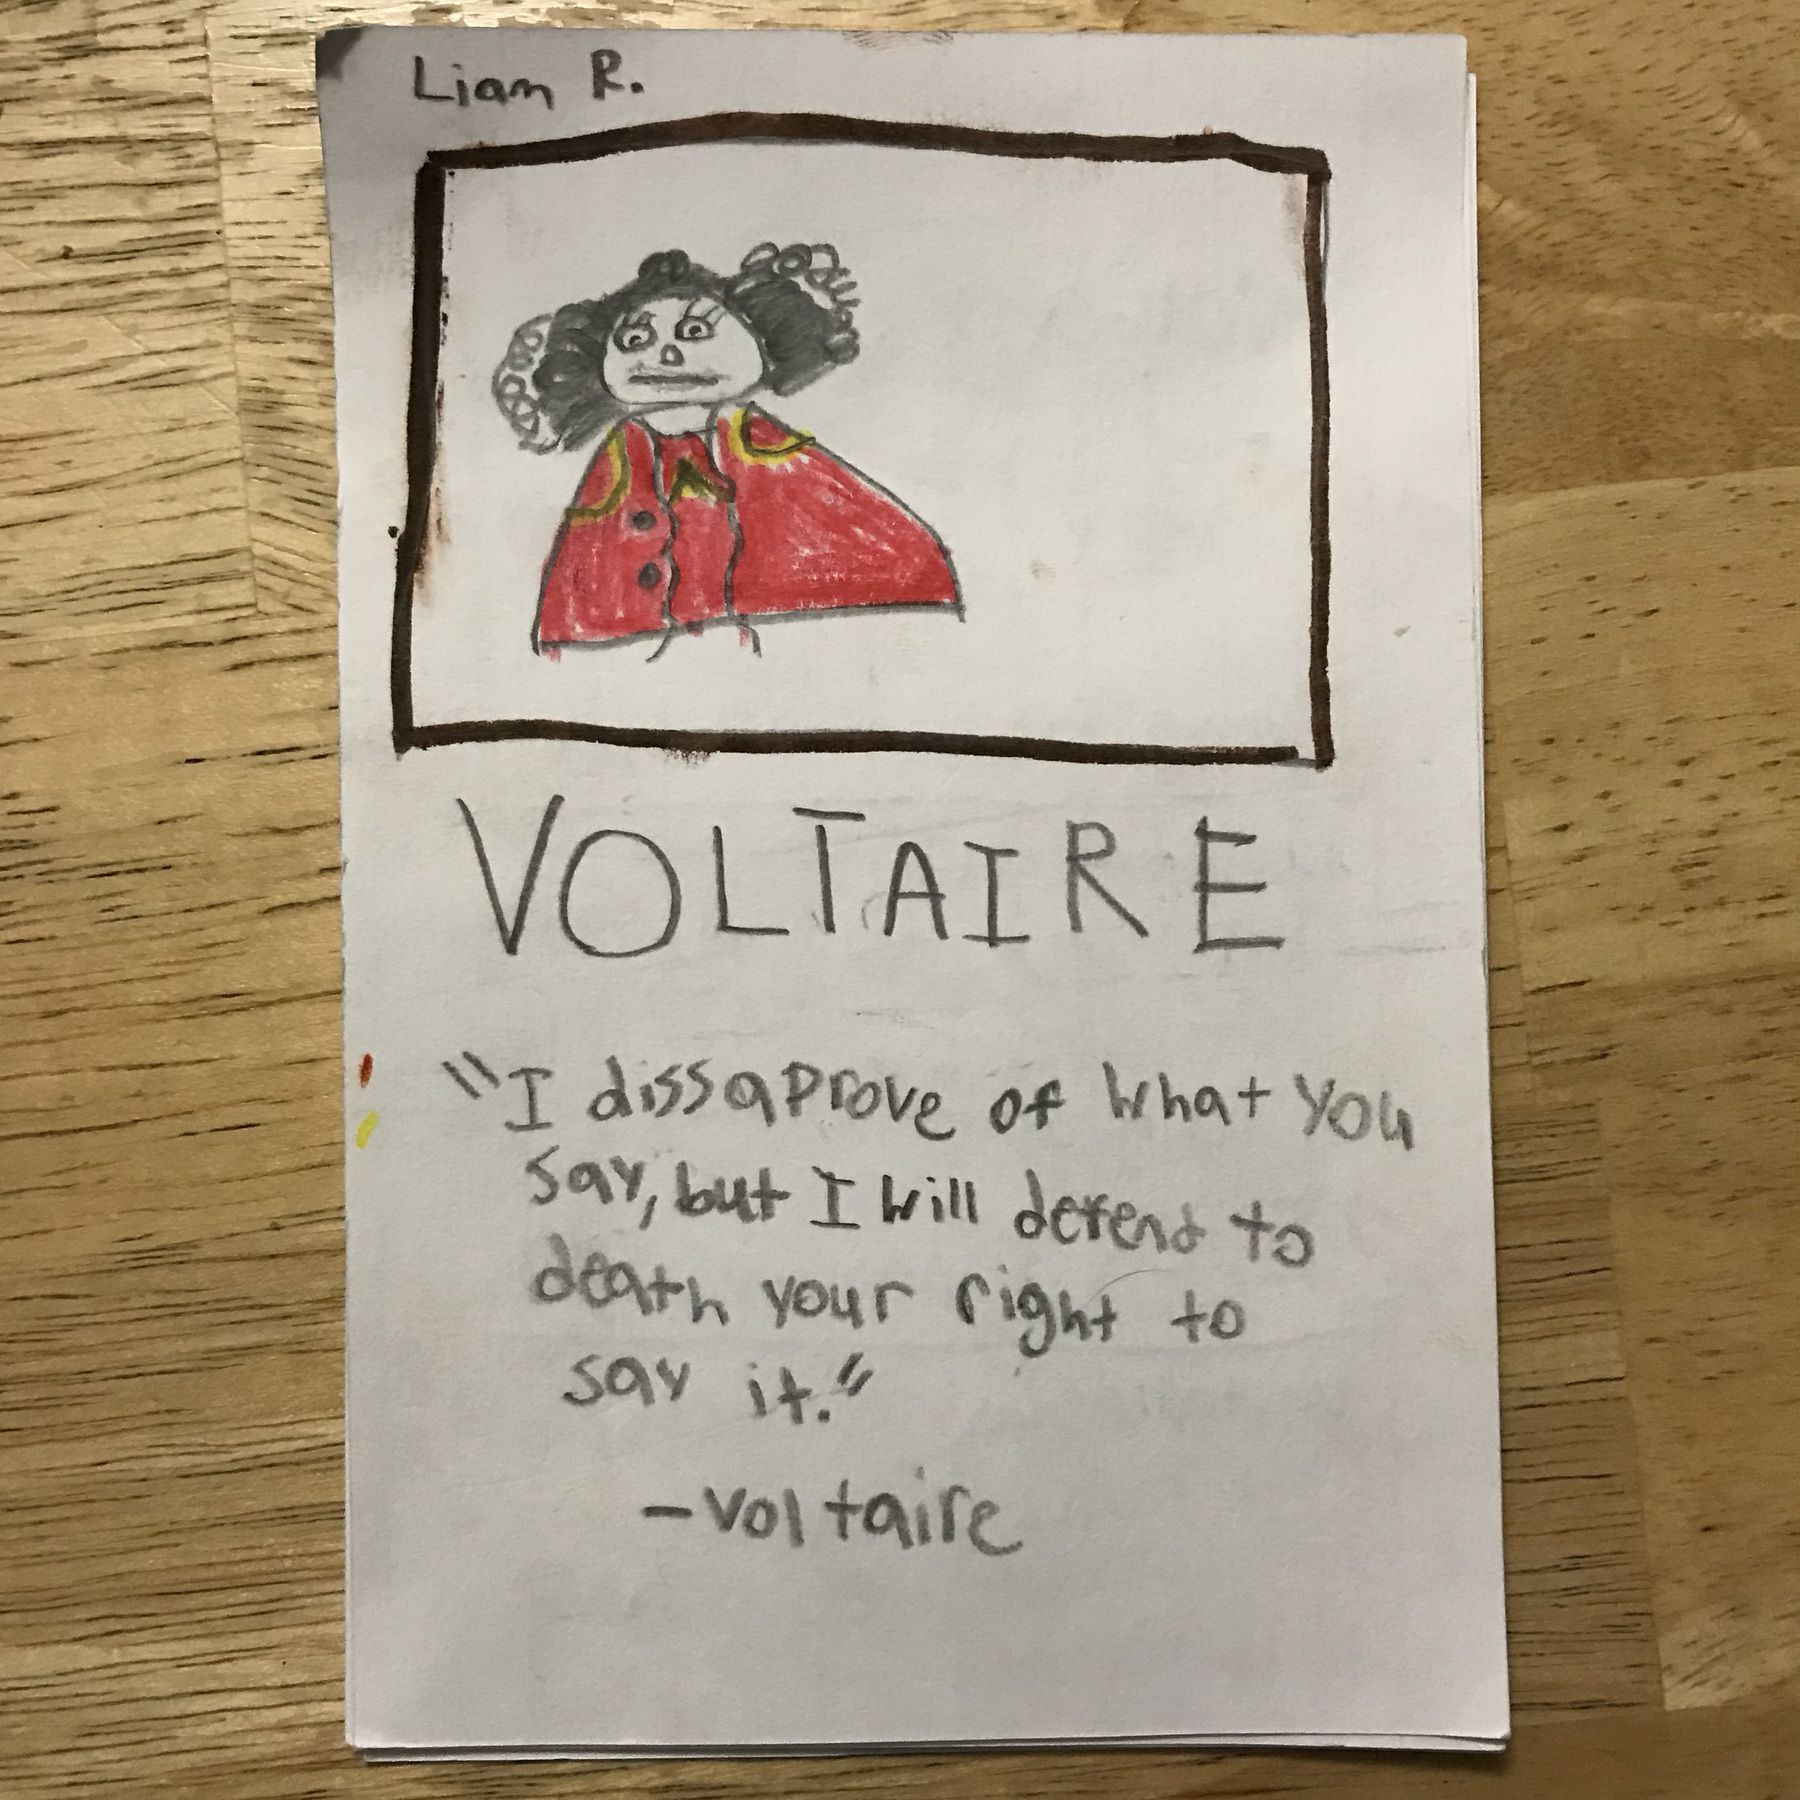 Liam R.
VOLTAIRE
"I dissaprove of what you
say, but I will defend to
death your right to
say it."
-voltaire